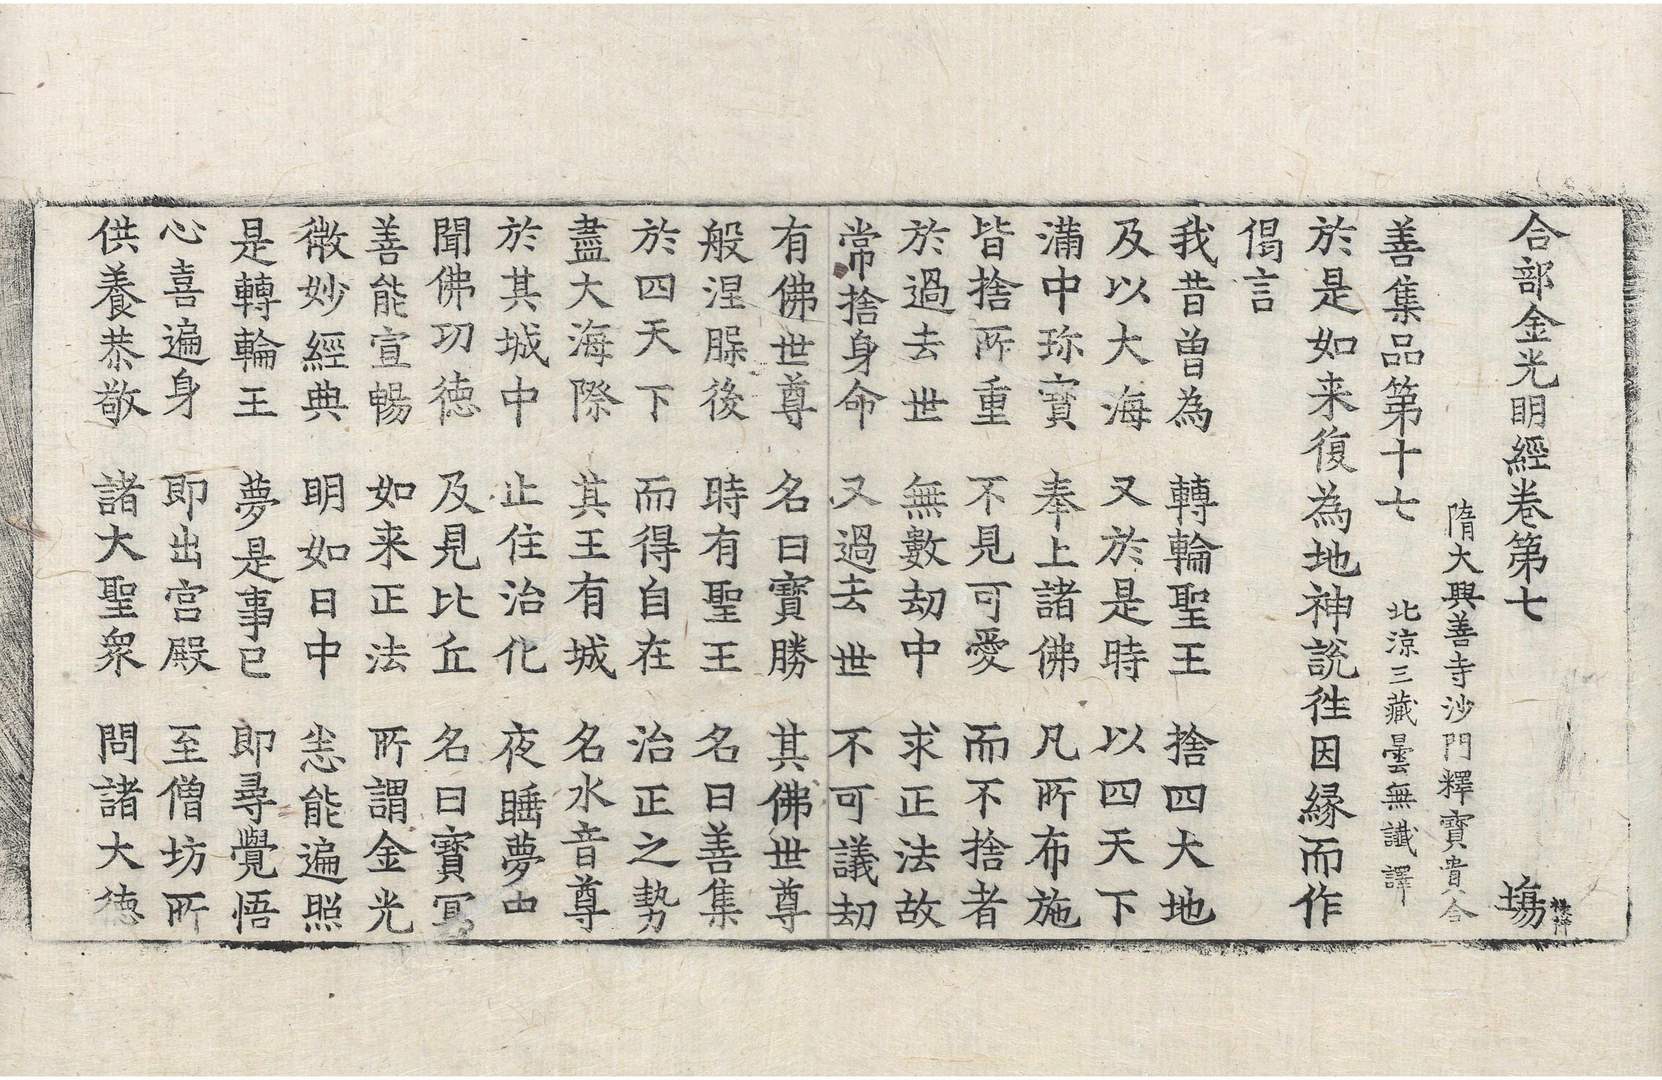 合部金光明經卷第七 塲
隋大興善寺沙門釋寶貴合
善集品第十七 北涼三藏曇無讖譯
於是如来復為地神說徃因緣而作
偈言
我昔曽為 轉輪聖王 捨四大地
及以大海 又於是時 以四天下
滿中珎寳 奉上諸佛 凡所布施
皆捨所重 不見可愛 而不捨者
於過去世 無數劫中 求正法故
常捨身命 又過去世 不可議劫
有佛世尊 名曰寳勝 其佛世尊
般涅槃後 時有聖王 名曰善集
於四天下 而得自在 治正之勢
盡大海際 其王有城 名水音尊
於其城中 止住治化 夜睡夢中
聞佛功徳 及見比丘 名曰寳冥
善能宣暢 如来正法 所謂金光
微妙經典 明如日中 悉能遍照
是轉輪王 夢是事已 即尋覺悟
心喜遍身 即出宫殿 至僧坊所
供養恭敬 諸大聖衆 問諸大徳